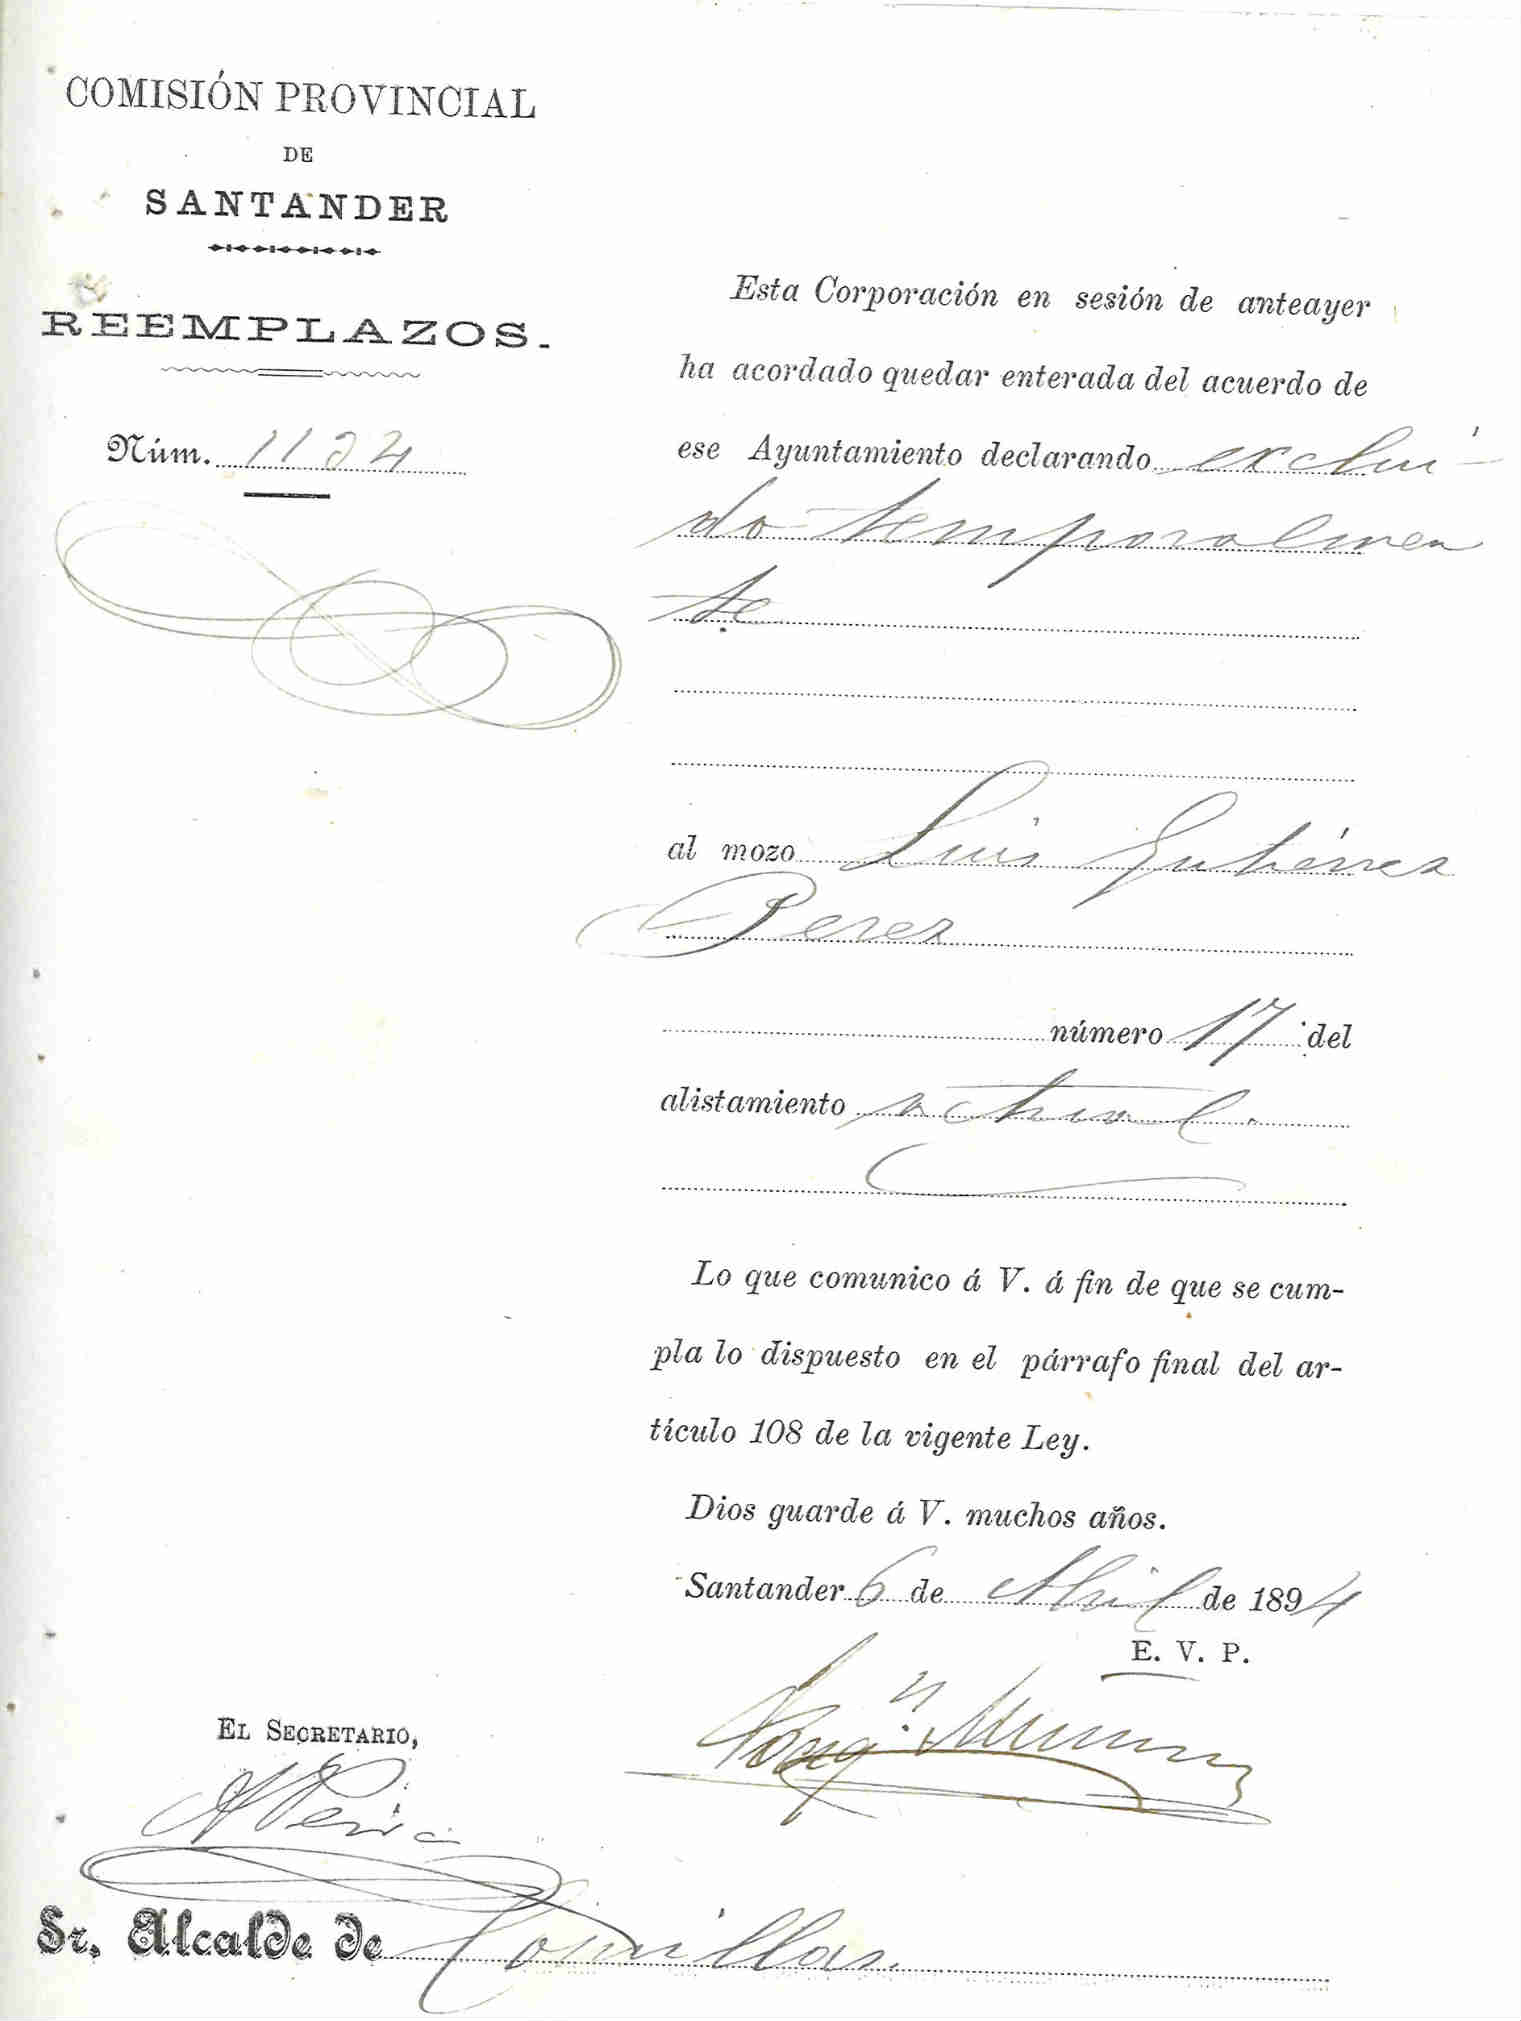 COMISIÓN PROVINCIAL
DE
SANTANDER
REEMPLAZOS.
Núm. 1124
Esta Corporación en sesión de anteayer
ha acordado quedar enterada del acuerdo de
ese Ayuntamiento declarando exclui-
do temporalmen
te
al mozo Luis Gutiérrez
Perez
número 17 del
alistamiento actual.
Lo que comunico á V. á fin de que se cum-
pla lo dispuesto en el párrafo final del ar-
tículo 108 de la vigente Ley.
Dios guarde á V. muchos años.
Santander 6 de Abril de 1894
E. V. P.
EL SECRETARIO,
Sr. Alcalde de Comillas.